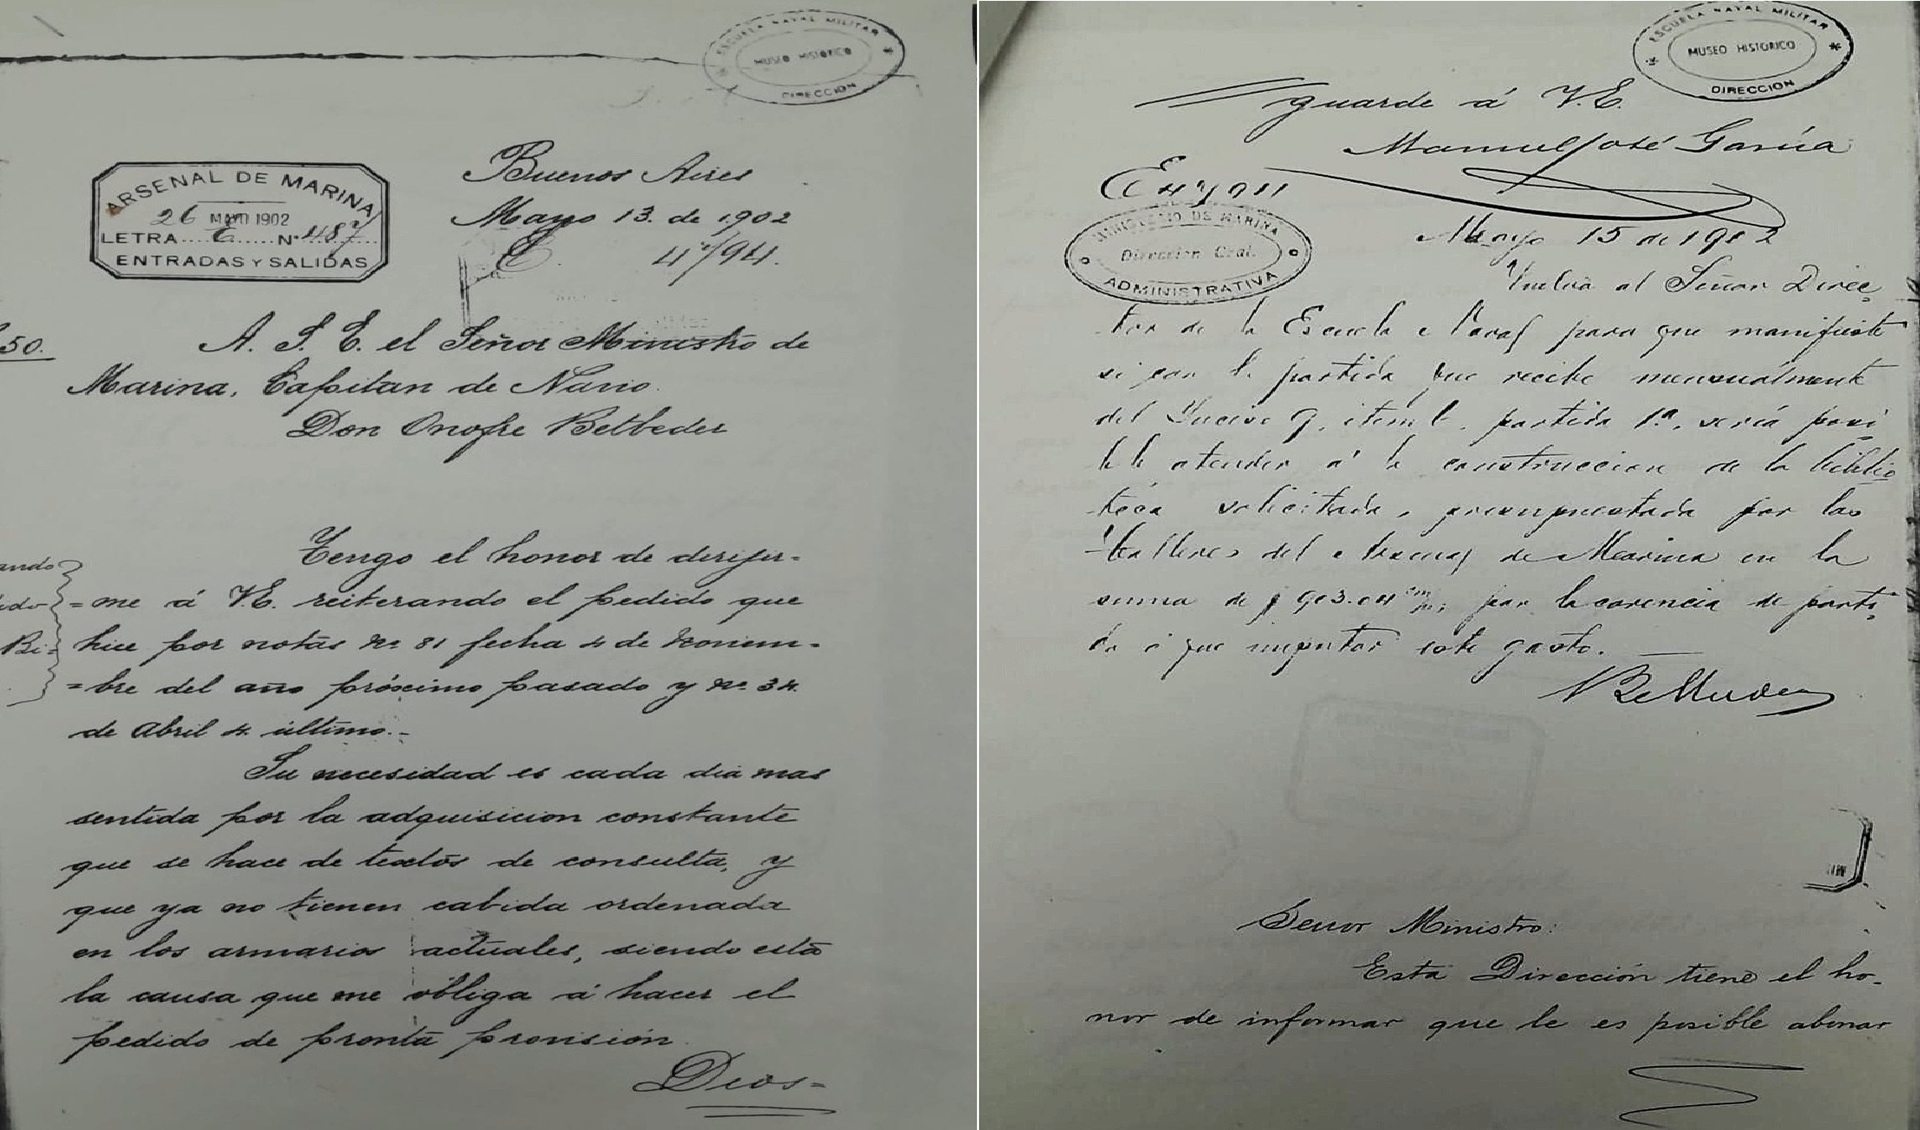 ESCUELA NAVAL MILITAR
MUSEO HISTORICO
DIRECCION
ARSENAL DE MARINA
26 MAYO 1902
LETRA E Nº 487
ENTRADAS Y SALIDAS
Buenos Aires
Mayo 13. de 1902
E. 4º/94.
50.
A. S. E. el Señor Ministro de
Marina, Capitan de Navio.
Don Onofre Betbeder
Tengo el honor de dirijir-
=me á V.E. reiterando el pedido que
hice por notas Nº 81 fecha 4 de Noviem-
=bre del año próximo pasado y Nº 34
de Abril 4 último.-
Su necesidad es cada dia mas
sentida por la adquisicion constante
que se hace de textos de consulta, y
que ya no tienen cabida ordenada
en los armarios actuales, siendo esta
la causa que me obliga á hacer el
pedido de pronta provisión.
Dios=
ESCUELA NAVAL MILITAR
MUSEO HISTORICO
DIRECCION
guarde á V.E.
Manuel José García
MINISTERIO DE MARINA
Direccion Gral.
ADMINISTRATIVA
Mayo 15 de 1902
Vuelva al Señor Direc-
tor de la Escuela Naval para que manifieste
si con la partida que recibe mensualmente
del Inciso 9, item 6, partida 1ª, sería posi
ble atender á la construccion de la biblio
teca solicitada, presupuestada por los
talleres del Arsenal de Marina en la
suma de $ 903.04 m/n, por la carencia de parti
da á que imputar este gasto.
Betbeder
Señor Ministro:
Esta Dirección tiene el ho-
nor de informar que le es posible abonar